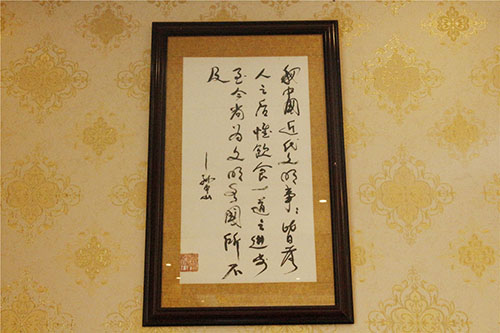 我中國近代文明事々皆落
人之后惟飲食一道之進步
至今尚为文明各國所不
及
—孙中山